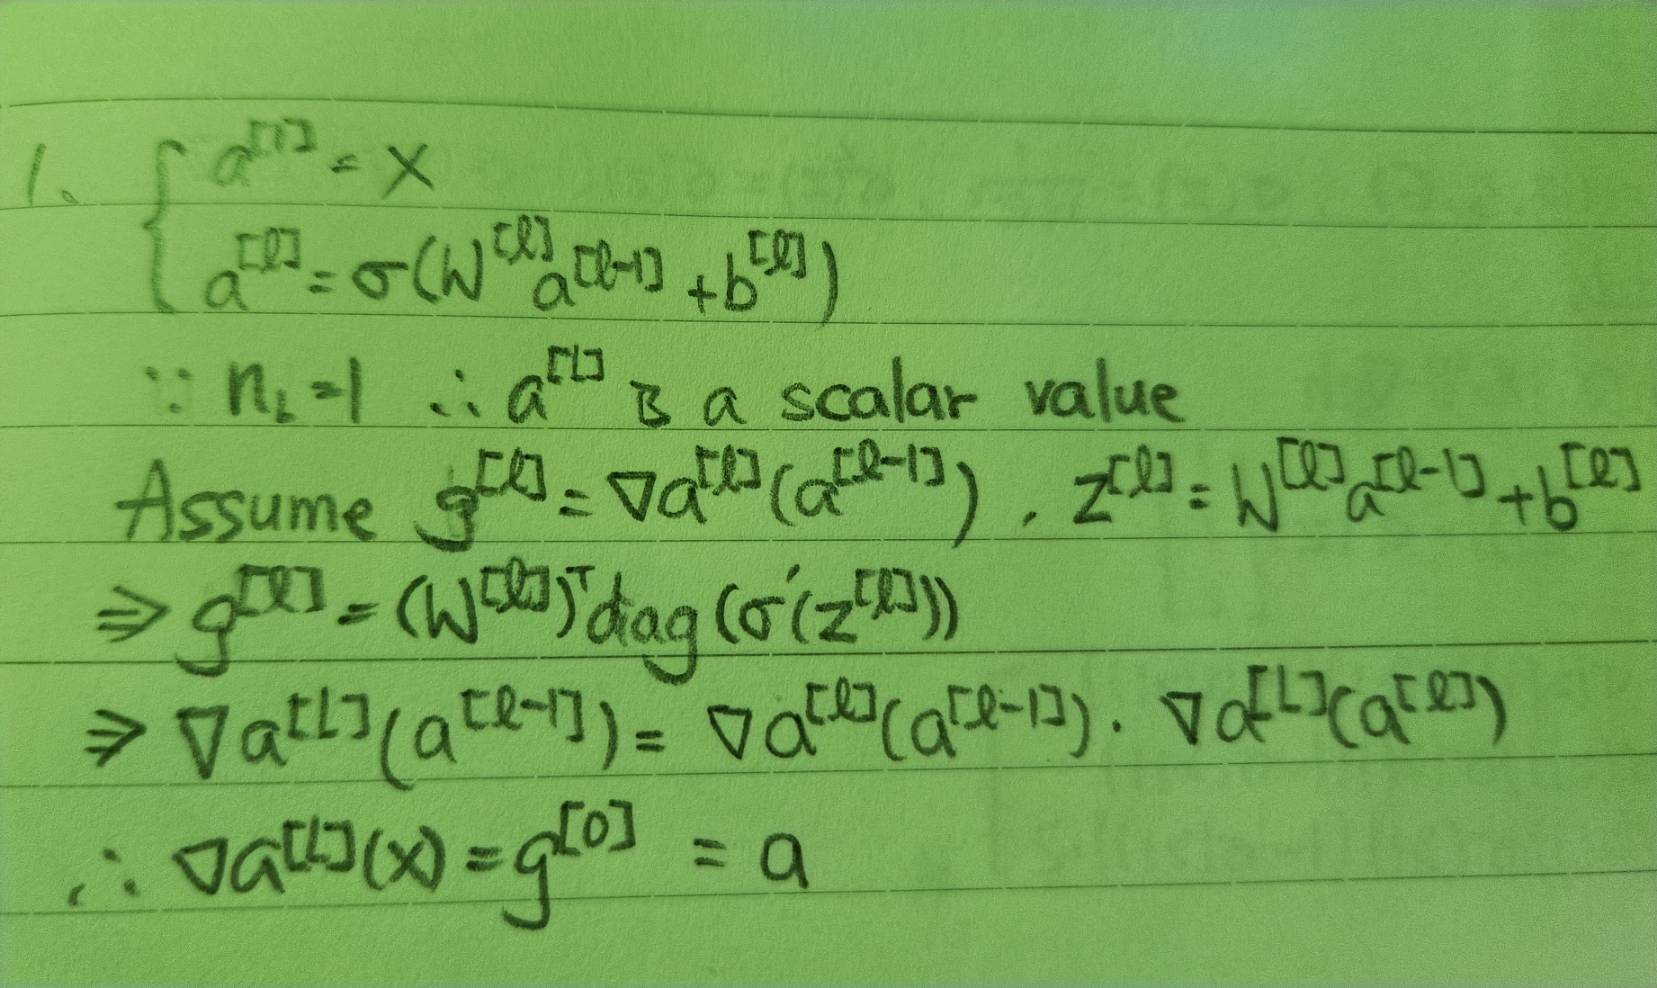 1. { a^[1] = x
a^[l] = σ(W^[l] a^[l-1] + b^[l])
∵ n_L = 1 ∴ a^[L] is a scalar value
Assume g^[l] = ∇a^[l](a^[l-1]), z^[l] = W^[l] a^[l-1] + b^[l]
⇒ g^[l] = (W^[l])^T diag(σ'(z^[l]))
⇒ ∇a^[L](a^[l-1]) = ∇a^[l](a^[l-1]) · ∇a^[L](a^[l])
∴ ∇a^[L](x) = g^[0] = a